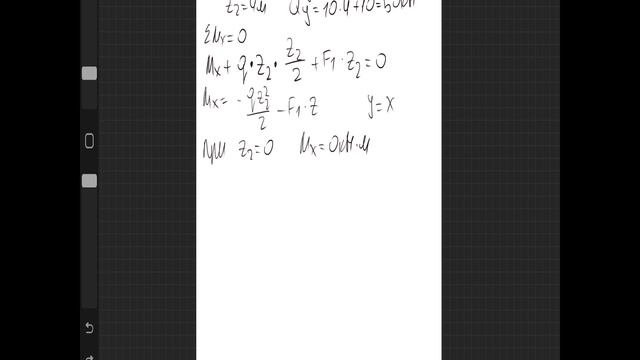 z₂=4м Qy=10·4+10=50кН
ΣMx=0
Mx + q·z₂·z₂/2 + F₁·z₂=0
Mx= -qz₂²/2 - F₁·z y=x
При z₂=0 Mx=0кН·м